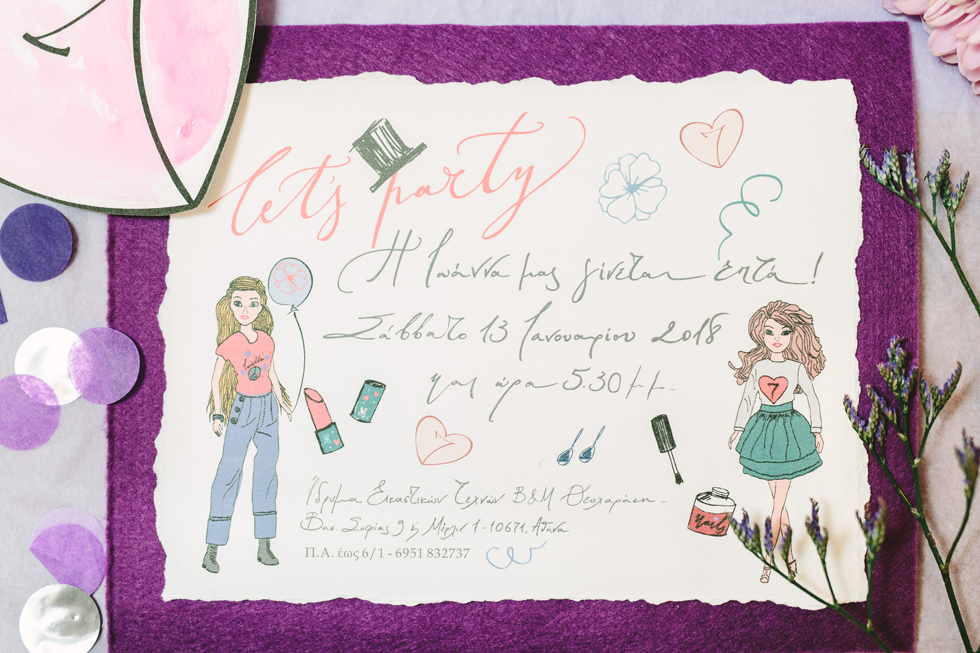 let's party
7
Η Ιωάννα μας γίνεται επτά!
Σάββατο 13 Ιανουαρίου 2018
και ώρα 5.30 μ.μ.
7
Ίδρυμα Εικαστικών Τεχνών Β&Μ Θεοχαράκη
Βασ. Σοφίας 9 & Μέρλιν 1-10671, Αθήνα
Π.Α. έως 6/1 - 6951 832737
nails